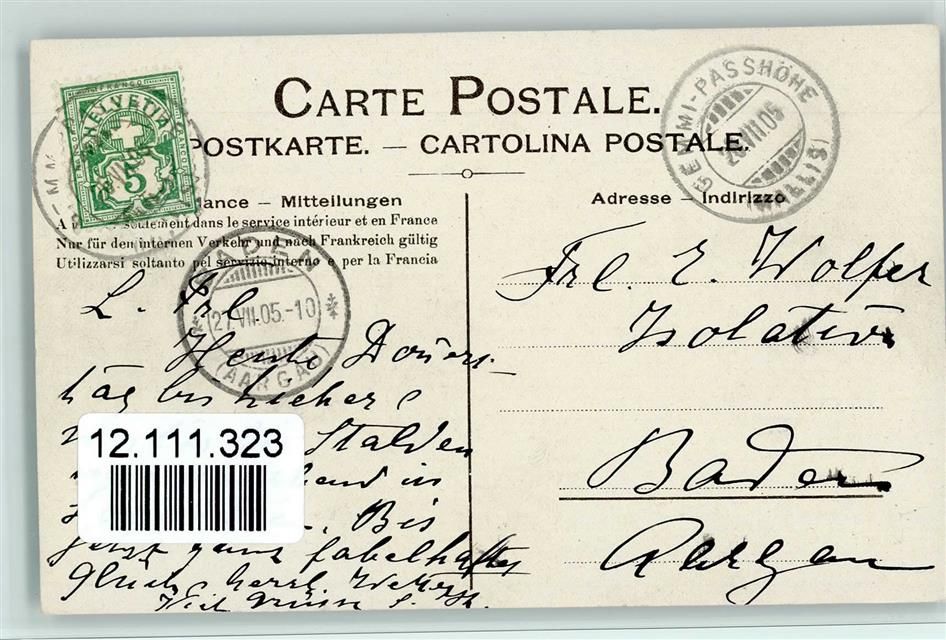 CARTE POSTALE.
POSTKARTE. — CARTOLINA POSTALE.
ance — Mitteilungen
Adresse — Indirizzo
A seulement dans le service intérieur et en France
Nur für den internen Verkehr und nach Frankreich gültig
Utilizzarsi soltanto pel servizio interno e per la Francia
HELVETIA
FRANCO
5
GEMMI-PASSHÖHE
VII.05
(WALLIS)
BADEN
27.VII.05.-10
(AARGAU)
Frl. E. Wolfer
Isolation
Baden
Aargau
L. Frl.
Heute Doners-
tag bis hieher
Stalden
in
Bis
jetzt ganz fabelhaftes
Glück, herrl. Wetter
Viel Grüsse
12.111.323